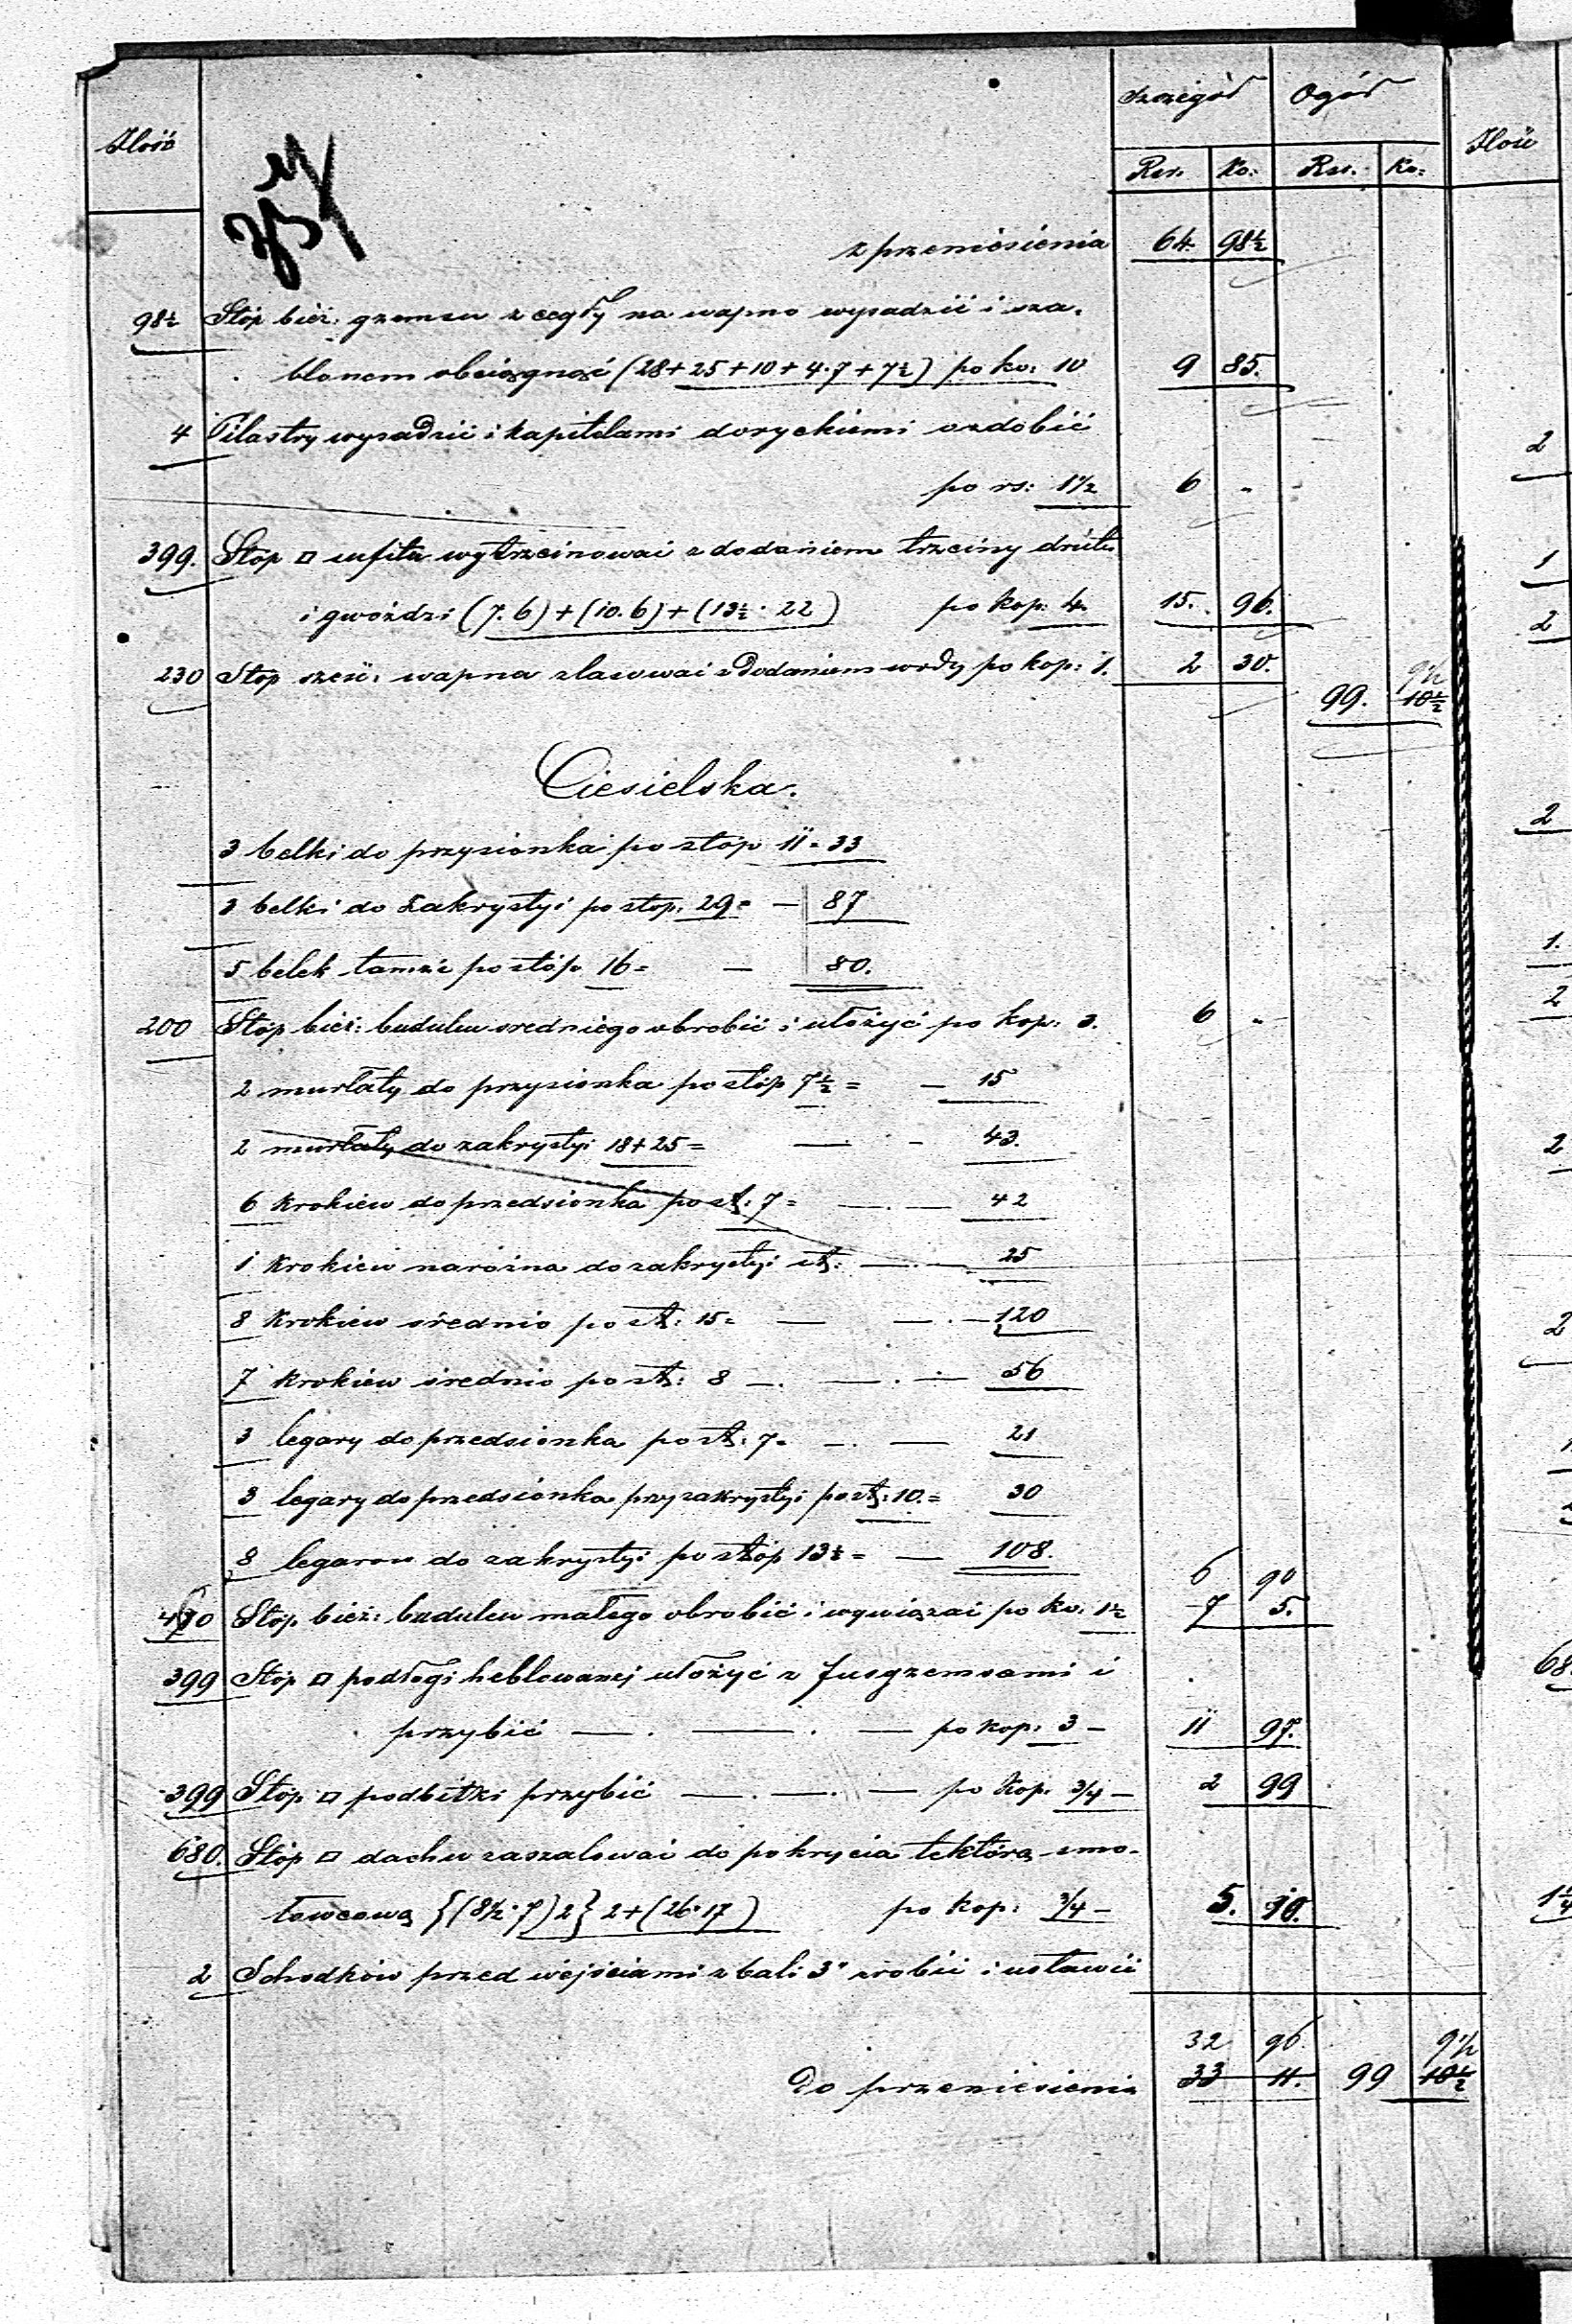 Ilość
Szczegół Ogół
Rsr. Ko: Rsr. Ko:
Ilość
z przeniesienia 64. 98½
98½ Stóp bież: gzemsu z cegły na wapno wysadzić i sza-
blonem obciągnąć (28+25+10+4·7+7½) po ko: 10 9 85.
4 Pilastry wysadzić i kapitelami doryckiemi ozdobić
po rs: 1½ 6 „
399. Stóp □ sufitu wytrzcinować z dodaniem trzciny drutu
i gwoździ (7.6)+(10.6)+(13½·22) po kop: 4. 15. 96.
230 Stóp sześć: wapna zlasować z dodaniem wody po kop: 1. 2 30.
9½
99. 10½
Ciesielska.
3 belki do przysionka po stóp 11 = 33
3 belki do Zakrystyi po stóp. 29 = — 87
5 belek tamże po stóp 16 = — 80.
200 Stóp bież: budulcu średniego obrobić i ułożyć po kop: 3. 6 „
2 murłaty do przysionka po stóp 7½ = — 15
2 murłaty do zakrystyi 18+25 = — 43.
6 Krokiew do przedsionka po st: 7 = — 42
1 Krokiew narożna do zakrystyi st: — 25
8 Krokiew średnio po st: 15 = — 120
7 Krokiew średnio po st: 8 — 56
3 legary do przedsionka po st: 7 = — 21
3 legary do przedsionka przy zakrystyi po st: 10. = 30
8 legarow do zakrystyi po stóp 13½ = — 108.
6 90
460 Stóp bież: budulcu małego obrobić i wywiązać po ko: 1½ 7 5.
399 Stóp □ podłogi heblowanej ułożyć z fusgzemsami i
przybić — po kop: 3 — 11 97.
399 Stóp □ podbitki przybić — po Kop. ¾ — 2 99
680. Stóp □ dachu zaszalować do pokrycia tekturą smo-
łowcową {(8½·7)2}2+(26·17) po kop: ¾ — 5. 10.
2 Schodków przed wejściami z bali 3" zrobić i ustawić
32 96. 9½
Do przeniesienia 33 11. 99 10½